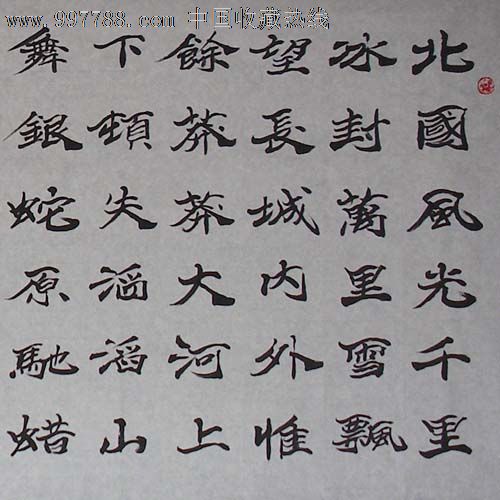 www.997788.com 中国收藏热线
北國風光千里
冰封萬里雪飄
望長城内外惟
餘莽莽大河上
下頓失滔滔山
舞銀蛇原馳蜡